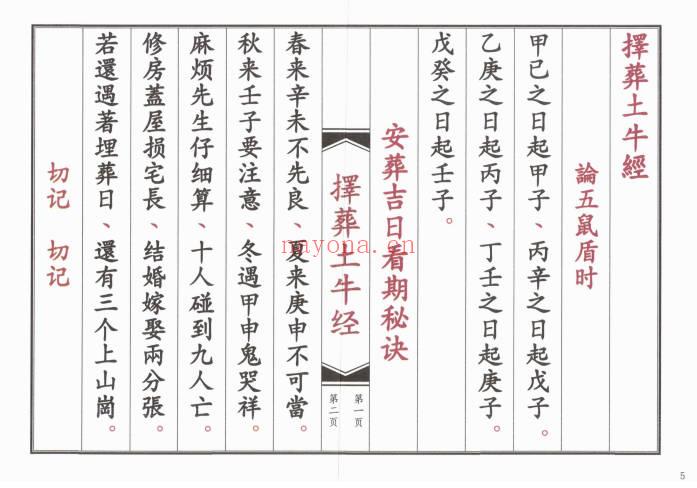 擇葬土牛經
論五鼠盾时
甲已之日起甲子、丙辛之日起戊子。
乙庚之日起丙子、丁壬之日起庚子。
戊癸之日起壬子。
安葬吉日看期秘诀
擇葬土牛经
第一页
第二页
春来辛未不先良、夏来庚申不可當。
秋来壬子要注意、冬遇甲申鬼哭祥。
麻烦先生仔细算、十人碰到九人亡。
修房蓋屋损宅長、結婚嫁娶兩分張。
若還遇著埋葬日、還有三个上山崗。
切记 切记
nayona.cn
5